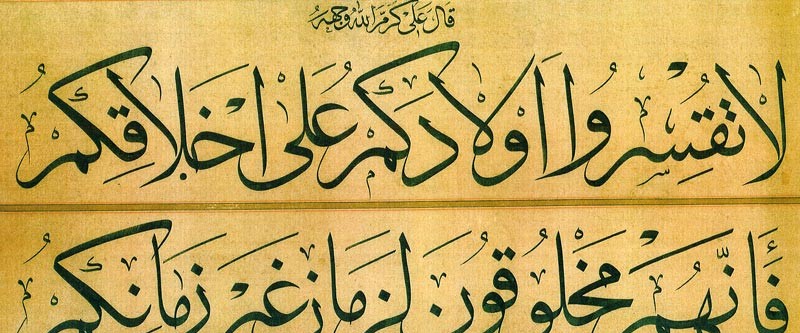 قال علی کرم الله وجهه
لا تقسروا اولادكم على اخلاقكم
فإنهم مخلوقون لزمان غير زمانكم